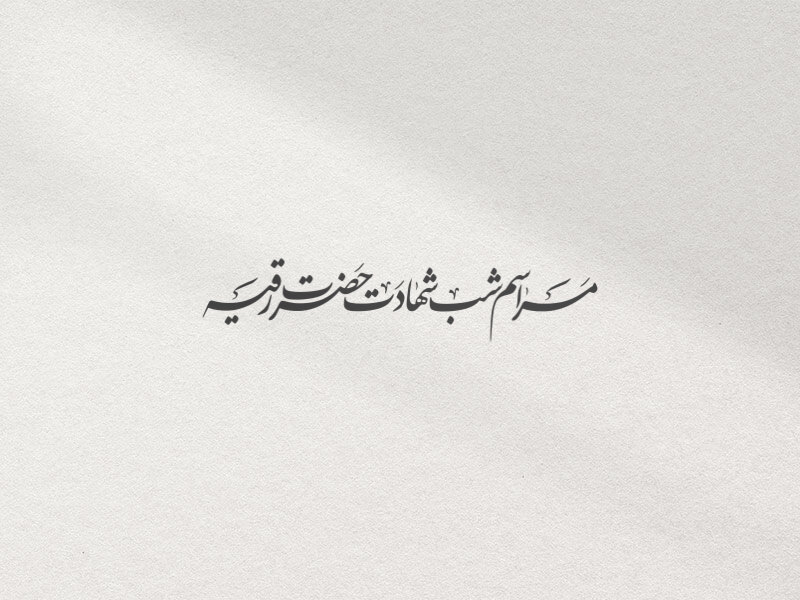 مراسم شب شهادت حضرت رقیه